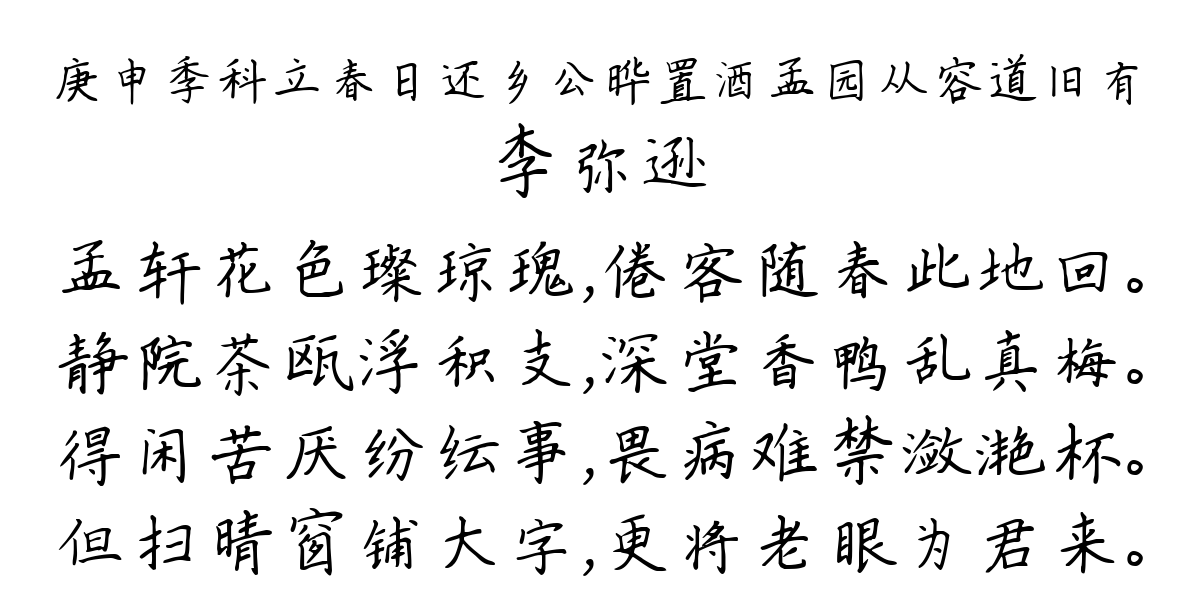 庚申季科立春日还乡公晔置酒孟园从容道旧有
李弥逊
孟轩花色璨琼瑰,倦客随春此地回。
静院茶瓯浮积支,深堂香鸭乱真梅。
得闲苦厌纷纭事,畏病难禁潋滟杯。
但扫晴窗铺大字,更将老眼为君来。